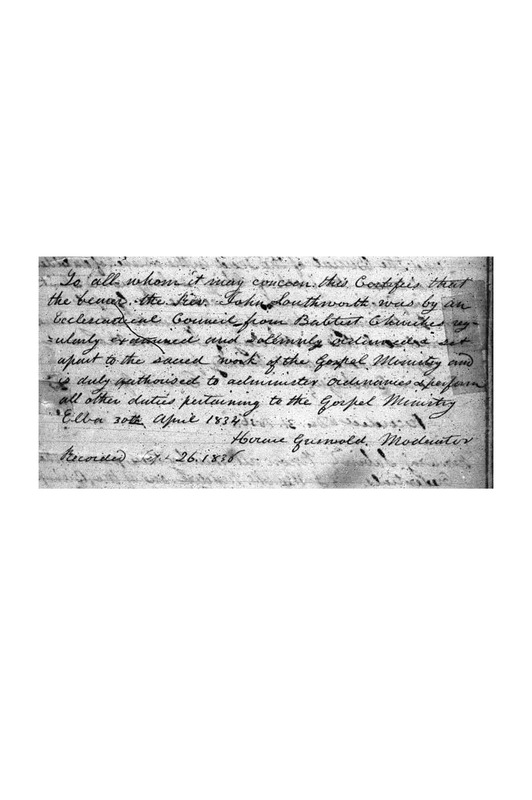 To all whom it may concern this Certifies that
the bearer the Rev. John Southworth was by an
Ecclesiastical Council from Babtist Churches reg-
-ularly examined and solemnly ordained & set
apart to the sacred work of the Gospel Ministry and
is duly authorised to administer ordinances & perform
all other duties pertaining to the Gospel Ministry
Elba 30th April 1834
Horace Griswold, Moderator
Recorded 26. 1836